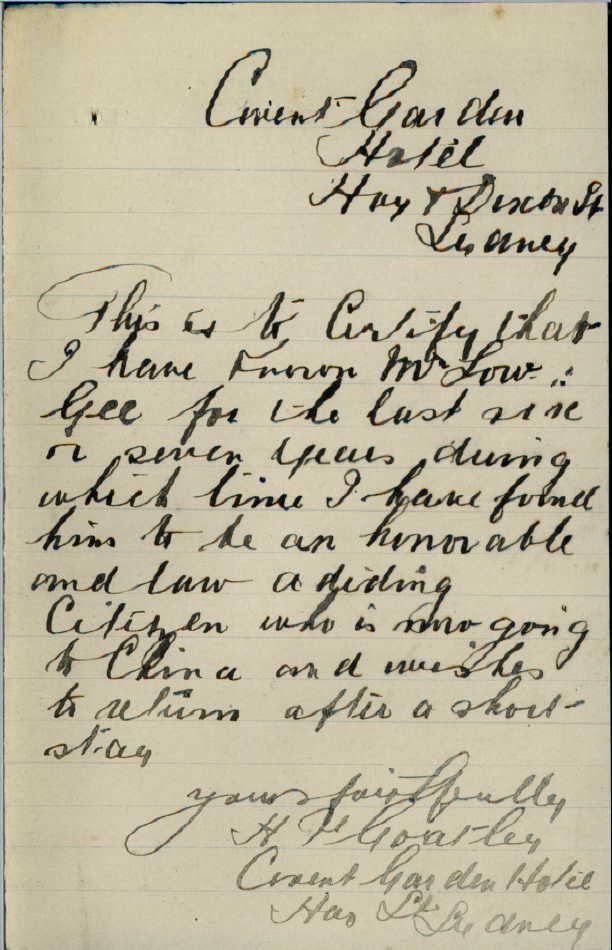 Covent Garden
Hotel
Hay & Dixon St
Sydney
This is to Certify that
I have known Mr Low
Gee for the last six
or seven years during
which time I have found
him to be an honorable
and law abiding
Citizen who is now going
to China and wishes
to return after a short
stay
yours faithfully
H
Covent Garden Hotel
Hay St Sydney